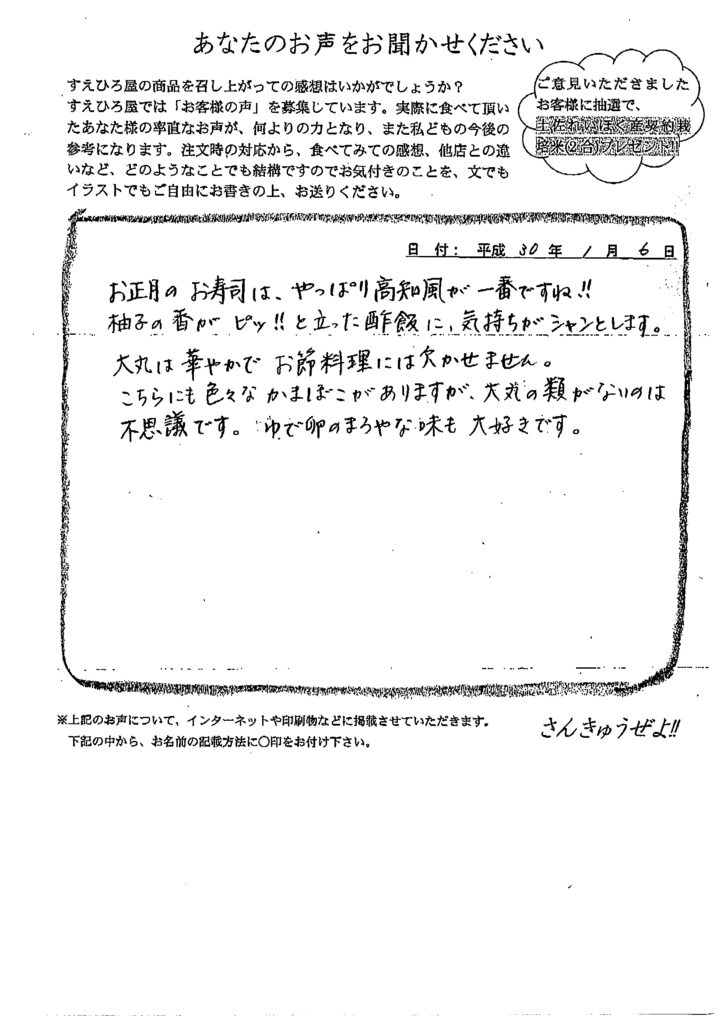 あなたのお声をお聞かせください
すえひろ屋の商品を召し上がっての感想はいかがでしょうか？
すえひろ屋では「お客様の声」を募集しています。実際に食べて頂い
たあなた様の率直なお声が、何よりの力となり、また私どもの今後の
参考になります。注文時の対応から、食べてみての感想、他店との違
いなど、どのようなことでも結構ですのでお気付きのことを、文でも
イラストでもご自由にお書きの上、お送りください。
ご意見いただきました
お客様に抽選で、
土佐れいほく産契約栽
培米(2合)プレゼント!!
日 付： 平成 30 年 1 月 6 日
お正月の お寿司は、やっぱり高知風が 一番ですね!!
柚子の香が ピッ!! と立った酢飯に、気持ちがシャンとします。
大丸は華やかで お節料理には欠かせません。
こちらにも色々な かまぼこがありますが、大丸の類がないのは
不思議です。 ゆで卵のまろやな味も 大好きです。
※上記のお声について、インターネットや印刷物などに掲載させていただきます。
下記の中から、お名前の記載方法に〇印をお付け下さい。
さんきゅうぜよ!!